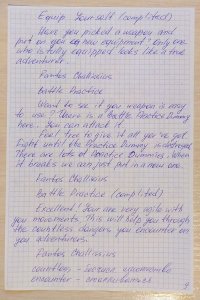 Equip Yourself (complited)
Have you picked a weapon and
put on you a new equipment? Only one
who is fully equipped looks like a true
adventurer.
Pantos Challisius
Battle Practice
Want to see if you weapon is easy
to use? There is a Battle Practice Dummy
here. You can attack it.
Feel free to give it all you've got.
Fight until the Practice Dummy is destroyed.
There are lots of Practice Dummies. When
it breaks we can just put in a new one.
Pantos Challisius
Battle Practice (complited)
Excellent! Your are very agile with
you movements. This will help you through
the countless dangers you encounter on
you adventurers.
Pantos Challisius
countless -
encounter -